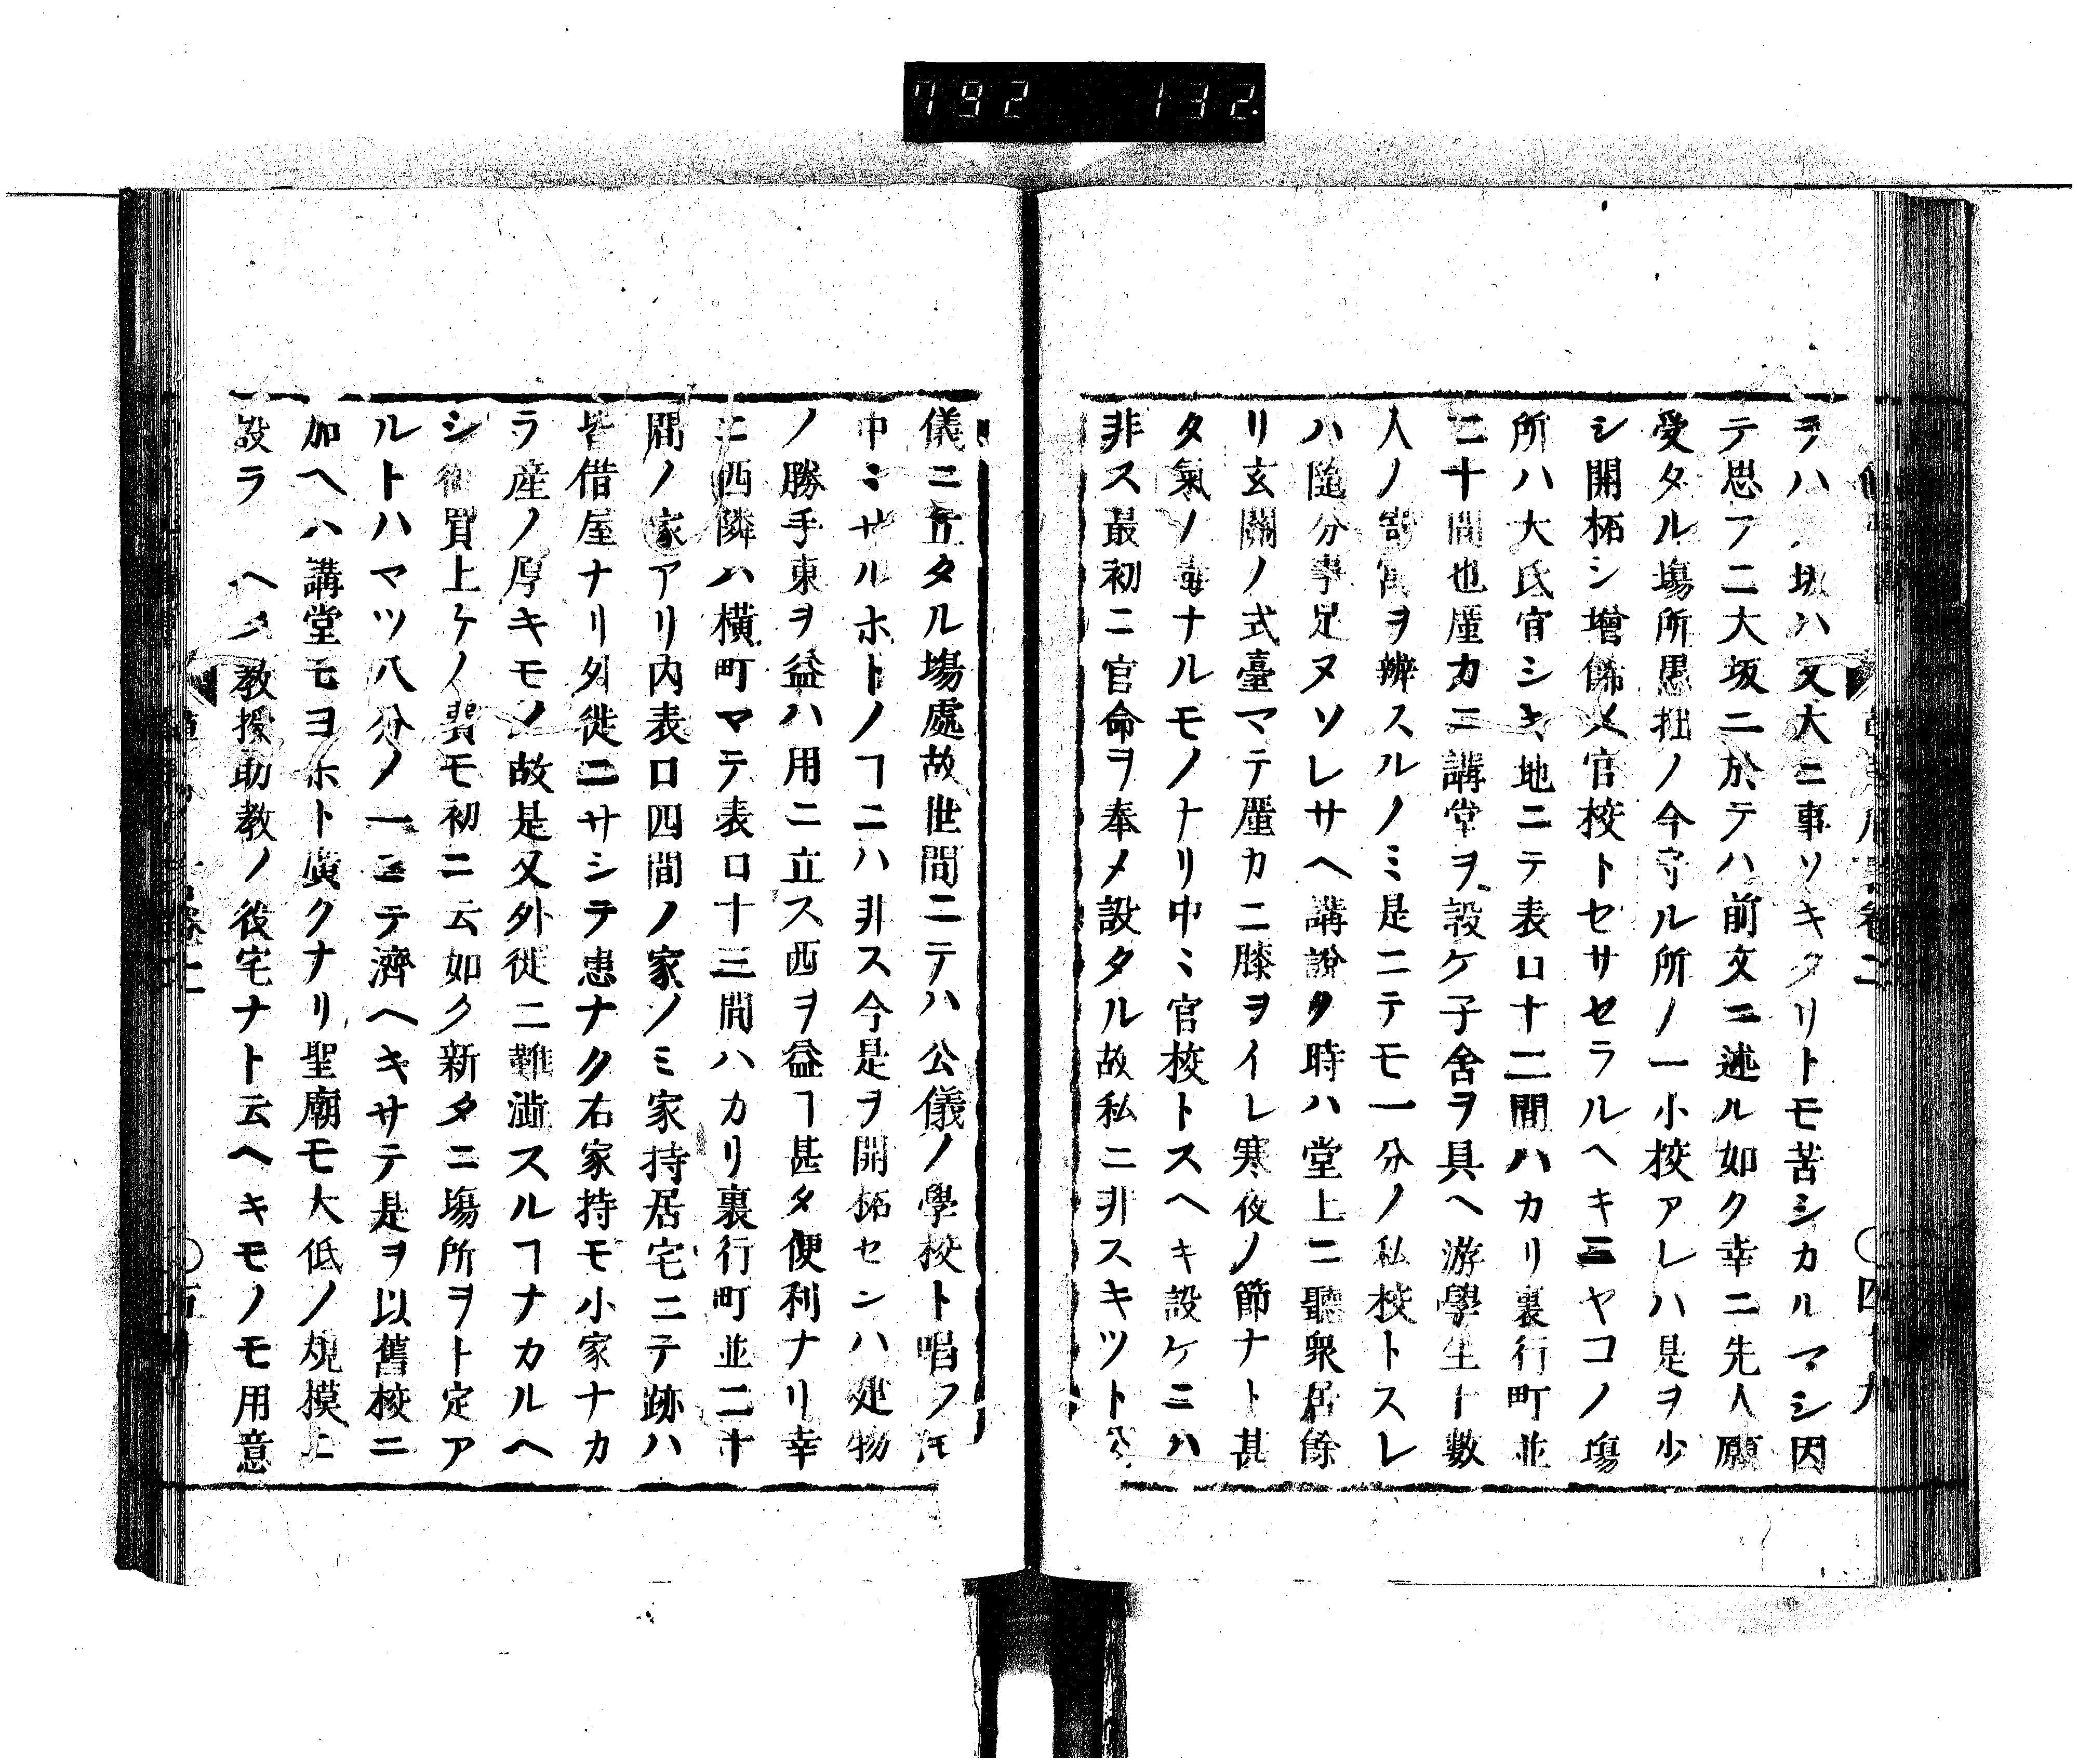 792 132
ヲハ 坂ハ又大ニ事ソキタリトモ苦シカルマシ因
テ思フニ大坂ニ於テハ前文ニ述ル如ク幸ニ先人願
受タル塲所愚拙ノ今守ル所ノ一小校アレハ是ヲ少
シ開柘シ增餙メ官校トセサセラルヘキニヤコノ塲
所ハ大氐宵シキ地ニテ表口十二間ハカリ裏行町並
二十間也厪カニ講堂ヲ設ケ子舍ヲ具ヘ游學生十數
人ノ寄寓ヲ辨スルノミ是ニテモ一分ノ私校トスレ
ハ隨分事足ヌソレサヘ講說ク時ハ堂上ニ聽衆居餘
リ玄關ノ式臺マテ厪カニ膝ヲイレ寒夜ノ節ナト甚
タ氣ノ毒ナルモノナリ中ミ官校トスヘキ設ケニハ
非ス最初ニ官命ヲ奉メ設タル故私ニ非スキツト公
儀ニ立タル塲處故世間ニテハ公儀ノ學校ト唱フ𪜈
中ミサルホトノヿニハ非ス今是ヲ開柘センハ建物
ノ勝手東ヲ益ハ用ニ立ス西ヲ益ヿ甚タ便利ナリ幸
ニ西隣ハ橫町マテ表口十三間ハカリ裏行町並二十
間ノ家アリ內表口四間ノ家ノミ家持居宅ニテ跡ハ
皆借屋ナリ外徙ニサシテ患ナク右家持モ小家ナカ
ラ産ノ厚キモノ故是又外徙ニ難澁スルヿナカルヘ
シ 買上ケノ費モ初ニ云如ク新タニ塲所ヲト定ア
ルトハマツ八分ノ一ニテ濟ヘキサテ是ヲ以舊校ニ
加ヘハ講堂モヨホト廣クナリ聖廟モ大低ノ規模ニ
設ラ ヘク教授助教ノ役宅ナト云ヘキモノモ用意